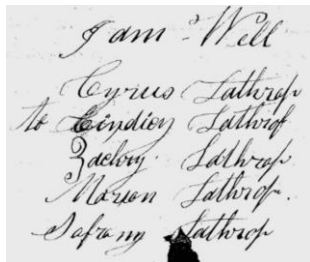 I am Well
Cyrus Lathrop
to Lathrop
Zachory. Lathrop
Marion Lathrop.
Lathrop